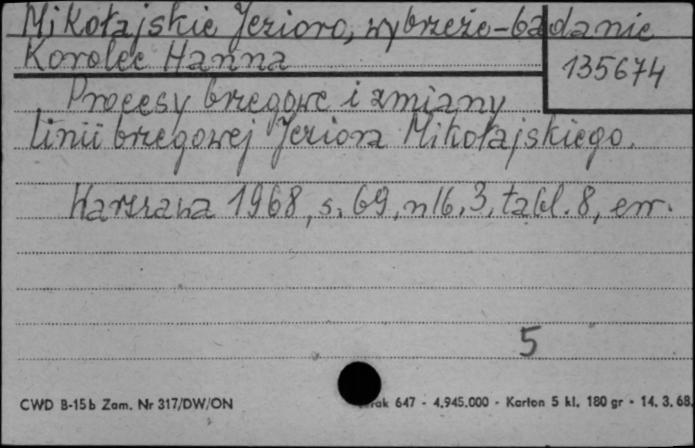 Mikołajskie Jezioro, wybrzeże-badanie
Korolec Hanna
135674
Procesy brzegowe i zmiany
linii brzegowej Jeziora Mikołajskiego.
Warszawa 1968, s. 69, nlb. 3, tabl. 8, err.
5
CWD B-15b Zam. Nr 317/DW/ON
647 - 4.945.000 - Karton 5 kl. 180 gr - 14. 3. 68.